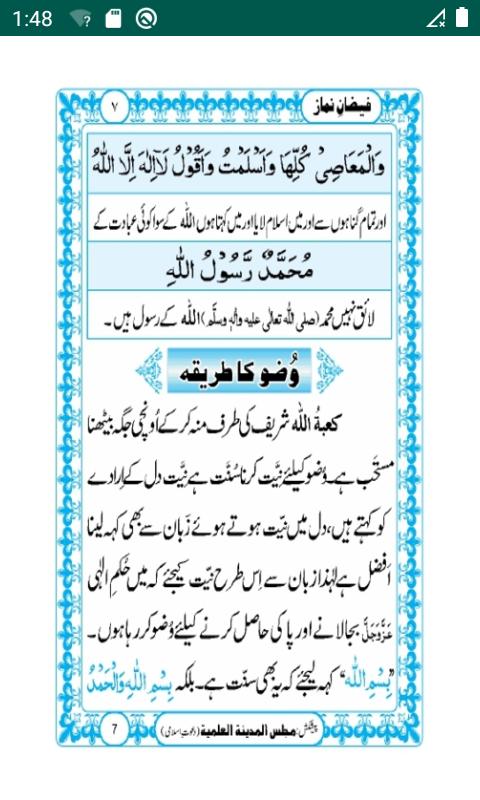 1:48
فیضانِ نماز
۷
وَالْمَعَاصِیْ کُلِّھَا وَاَسْلَمْتُ وَاَقُوْلُ لَآاِلٰہَ اِلَّا اللّٰہُ
اور تمام گناہوں سے اور میں اسلام لایا اور میں کہتا ہوں اللّٰہ کے سوا کوئی عبادت کے
مُحَمَّدٌ رَّسُوْلُ اللّٰہِ
لائق نہیں محمد (صلی اللّٰہ تعالٰی علیہ واٰلہٖ وسلَّم) اللّٰہ کے رسول ہیں۔
وُضو کا طریقہ
کعبۃُ اللّٰہ شریف کی طرف منہ کرکے اُونچی جگہ بیٹھنا
مستحَب ہے۔ وُضو کیلئے نِیَّت کرنا سُنَّت ہے نِیَّت دل کے اِرادے
کو کہتے ہیں، دل میں نیّت ہوتے ہوئے زَبان سے بھی کہہ لینا
اَفضل ہے لہٰذا زبان سے اِس طرح نیّت کیجئے کہ میں حُکمِ الٰہی
عَزَّوَجَلَّ بجا لانے اور پاکی حاصل کرنے کیلئے وُضو کر رہا ہوں۔
”بِسْمِ اللّٰہ“ کہہ لیجئے کہ یہ بھی سنّت ہے۔ بلکہ بِسْمِ اللّٰہِ وَالْحَمْدُ
پیشکش: مجلس المدینۃ العلمیۃ (دعوتِ اسلامی)
7